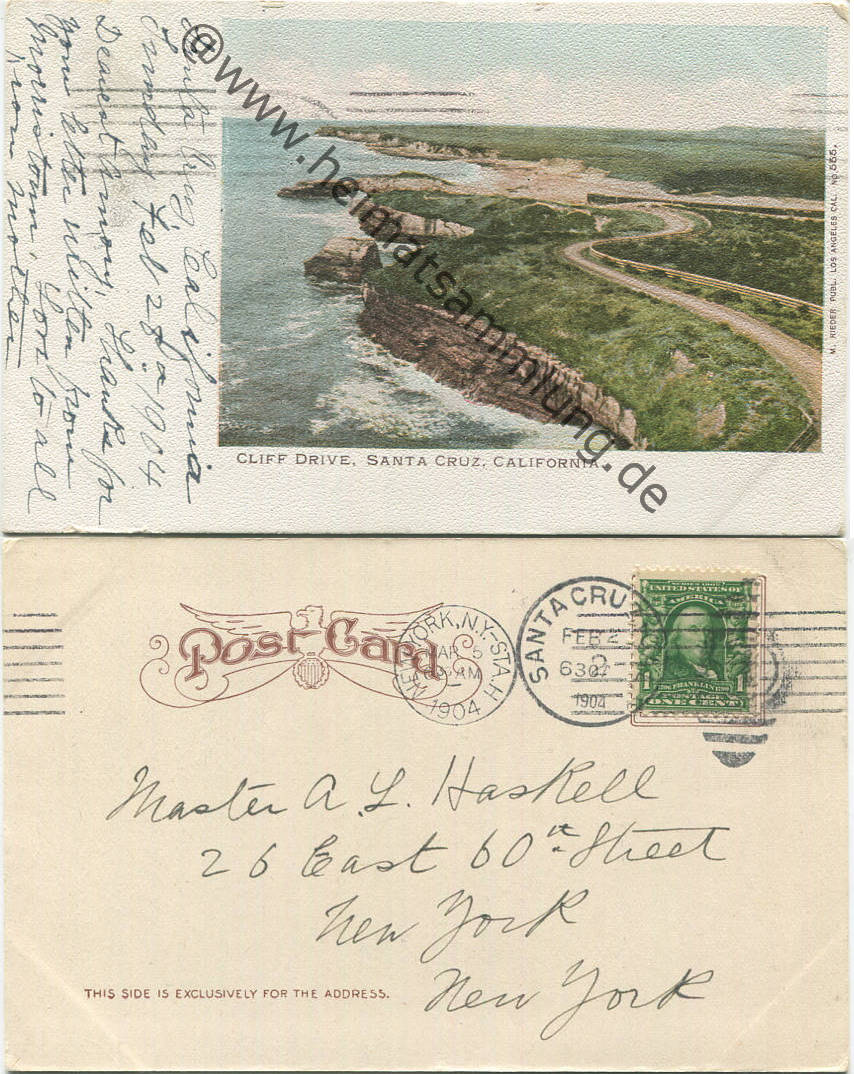 Santa Cruz, California
Sunday Feb 28th 1904
Dearest Amory, Thanks for
your letter written from
Morristown. Love to all
from Mother
CLIFF DRIVE, SANTA CRUZ, CALIFORNIA.
M. RIEDER, PUBL. LOS ANGELES CAL. NO. 555.
@www.heimatsammlung.de
Post Card
NEW YORK, N.Y.-STA. H
MAR 5
AM
1904
SANTA CRUZ
FEB 2
630P
1904
SERIES 1902
UNITED STATES OF
AMERICA
1706 FRANKLIN 1790
1 1
POSTAGE
ONE CENT
Master A. L. Haskell
26 East 60th Street
New York
New York
THIS SIDE IS EXCLUSIVELY FOR THE ADDRESS.